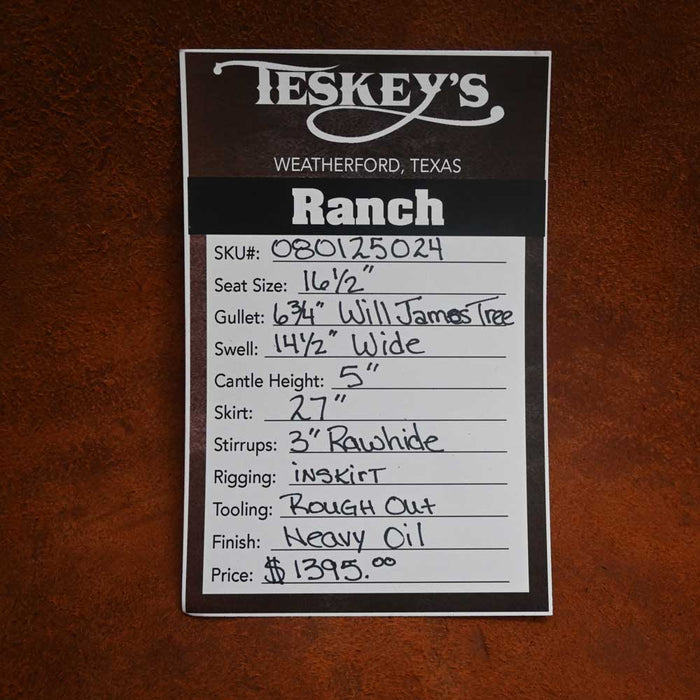 TESKEY'S
WEATHERFORD, TEXAS
Ranch
SKU#: 080125024
Seat Size: 16 1/2"
Gullet: 6 3/4" Will James Tree
Swell: 14 1/2" Wide
Cantle Height: 5"
Skirt: 27"
Stirrups: 3" Rawhide
Rigging: inskirt
Tooling: Rough Out
Finish: Heavy Oil
Price: $1395.00